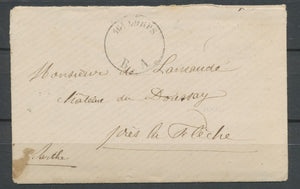 4e CORPS
B. A.
Monsieur de Lamandé
château du Doussay
près la Flèche
Sarthe